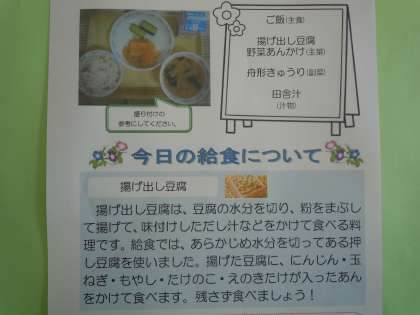 ご飯(主食)
揚げ出し豆腐
野菜あんかけ(主菜)
舟形きゅうり(副菜)
田舎汁
(汁物)
盛り付けの
参考にしてください。
今日の給食について
揚げ出し豆腐
揚げ出し豆腐は、豆腐の水分を切り、粉をまぶし
て揚げて、味付けしただし汁などをかけて食べる料
理です。給食では、あらかじめ水分を切ってある押
し豆腐を使いました。揚げた豆腐に、にんじん・玉
ねぎ・もやし・たけのこ・えのきたけが入ったあん
をかけて食べます。残さず食べましょう！